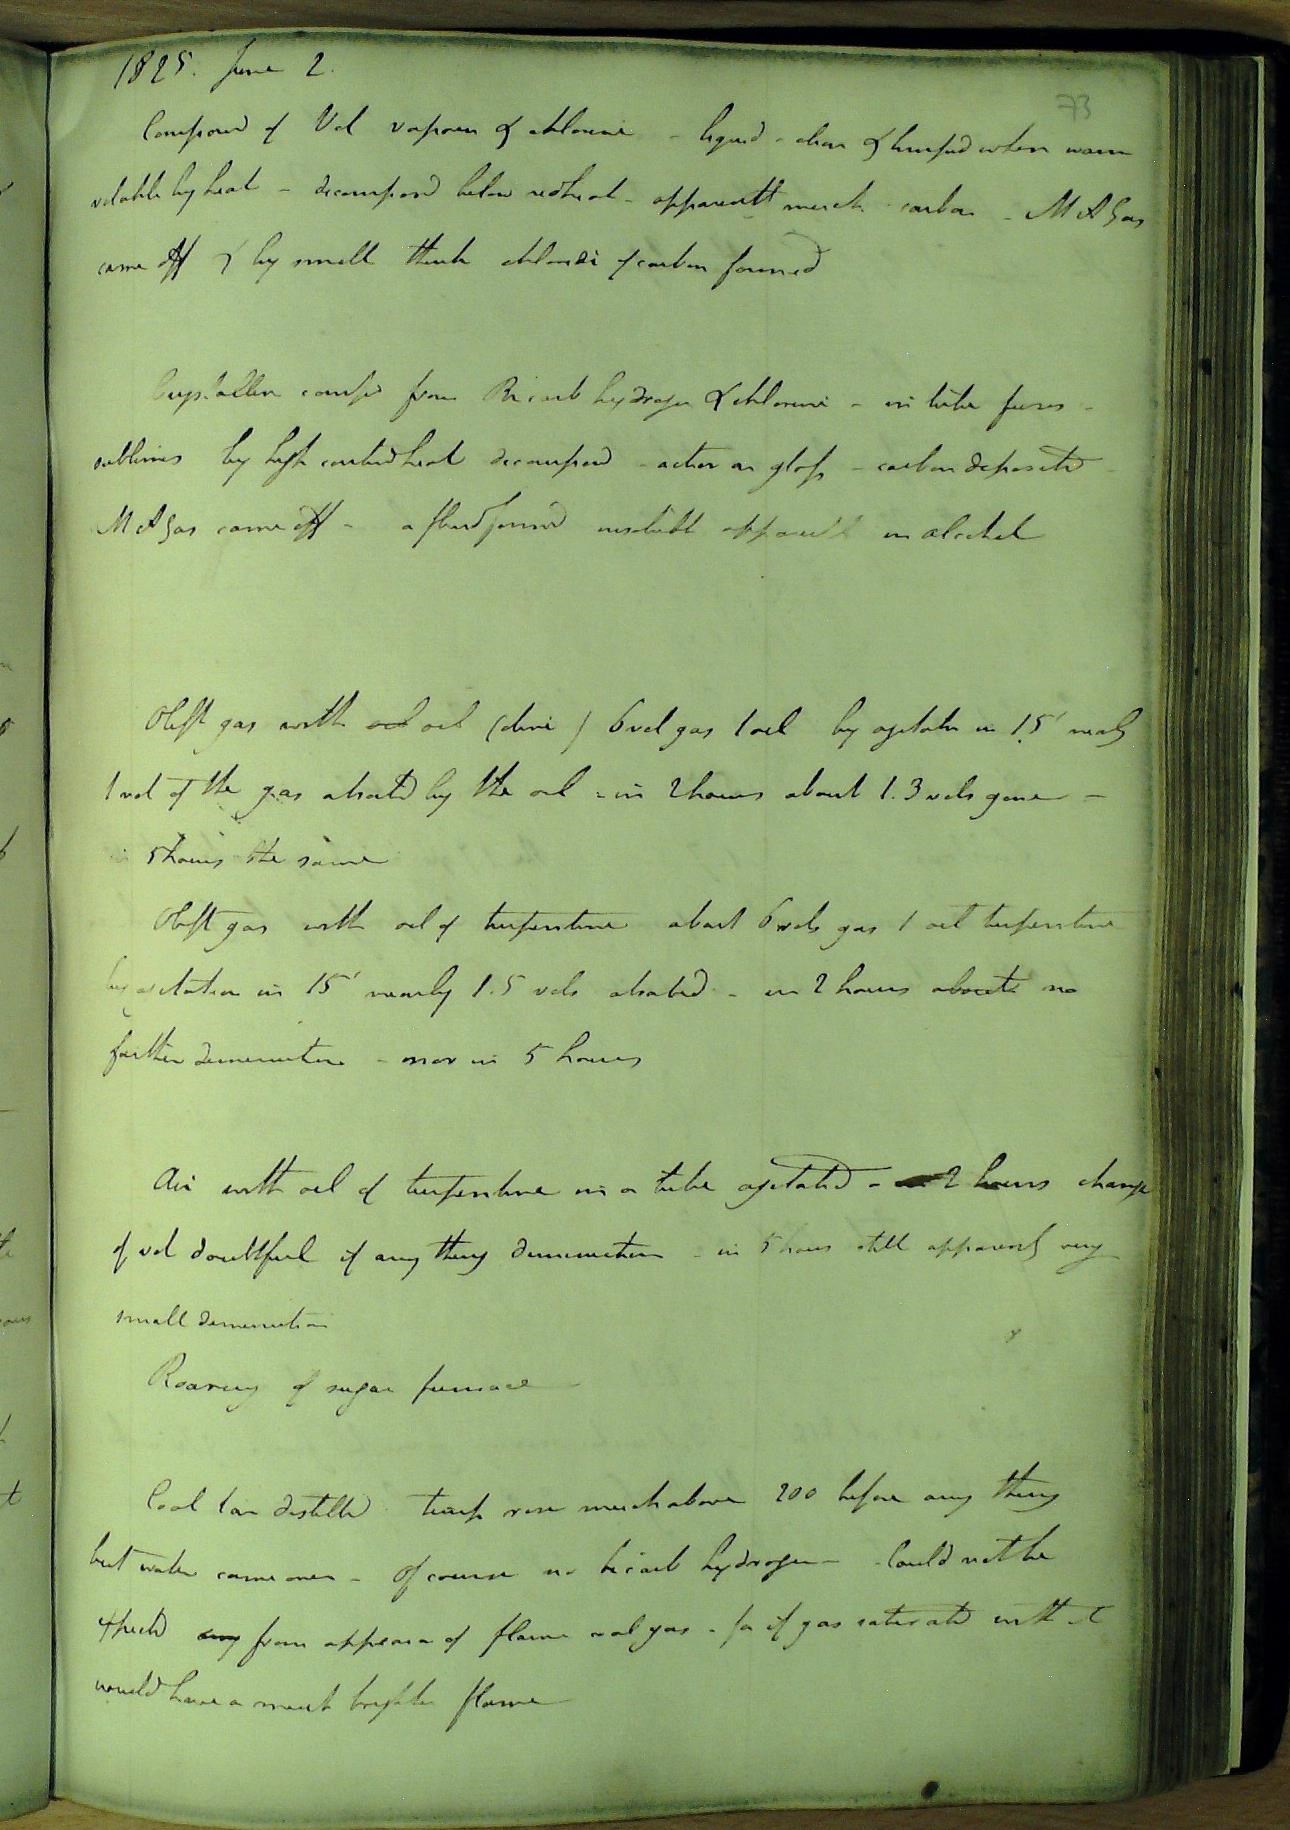 1825. June 2.
73
Compound of Vol vapour & chlorine - liquid - clear & limpid when warm
volatile by heat - decomposed below red heat - apparently much carbon - M A Gas
came off & by smell think chloride of carbon formed
Crystalline compd from Bi carb hydrogen & chlorine - in tube fuses -
sublimes by high contind heat decomposed - action on glass - carbon deposited -
M A Gas came off - a fluid formed insoluble apparently in alcohol
Oleft gas with oil oil (olive) 6 vol gas 1 oil by agitatn in 15' nearly
1 vol of the gas absorbd by the oil - in 2 hours about 1.3 vols gone -
in 5 hours the same
Oleft gas with oil of turpentine about 6 vols gas 1 oil turpentine
by agitation in 15' nearly 1.5 vols absorbed - in 2 hours about no
further diminution - nor in 5 hours
Air with oil of turpentine in a tube agitated - 2 hours change
of vol doubtful if any thing diminution - in 5 hours still apparently very
small diminution
Roaring of sugar furnace
Coal tar distilld temp rose much above 200 before any thing
but water came over - Of course no bicarb hydrogen - Could not be
expected any from appearance of flame coal gas - for if gas saturated with it
would have a much brighter flame